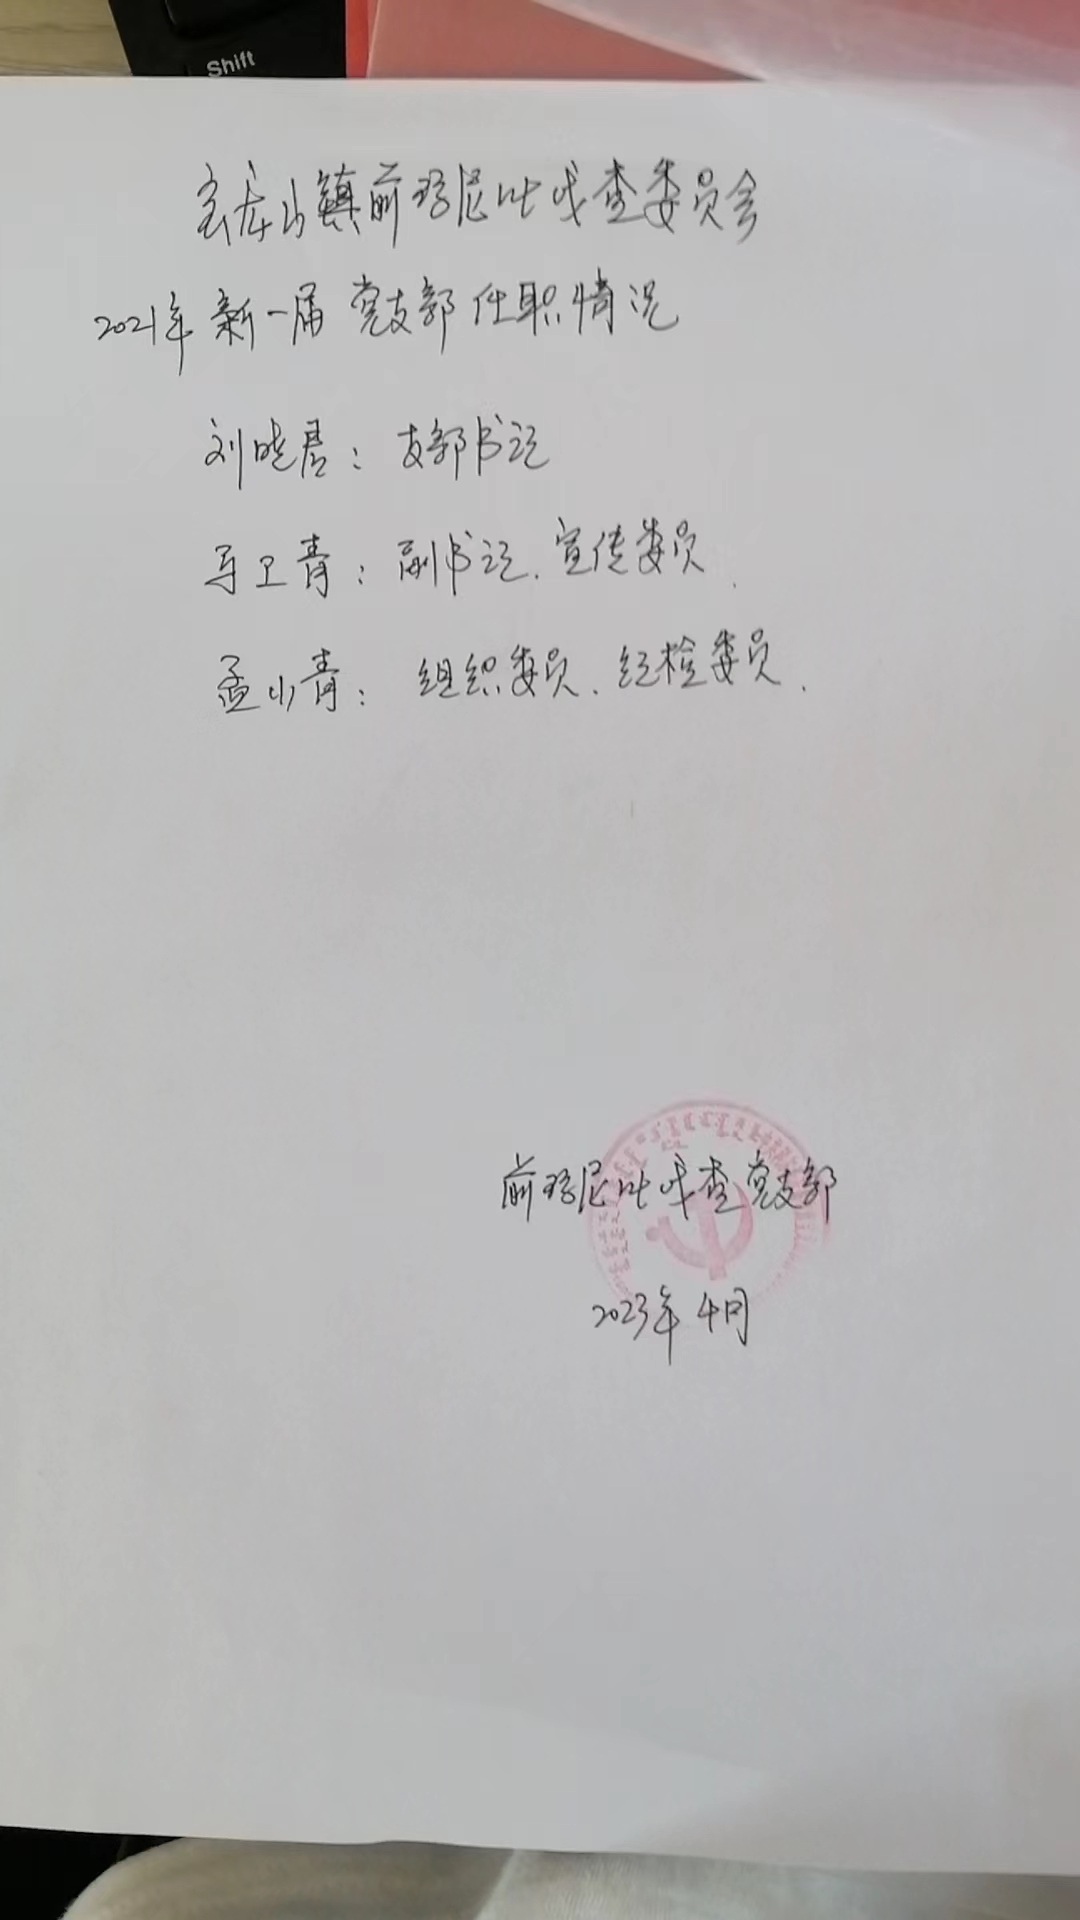 Shift
玄龙山镇前珍尼吐嘎查委员会
2021年新一届党支部任职情况
刘晓君：支部书记
马卫青：副书记、宣传委员.
孟小青：组织委员、纪检委员.
前珍尼吐嘎查党支部
2023年4月